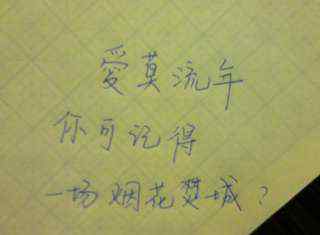 愛莫流年
你可记得
一场烟花城？